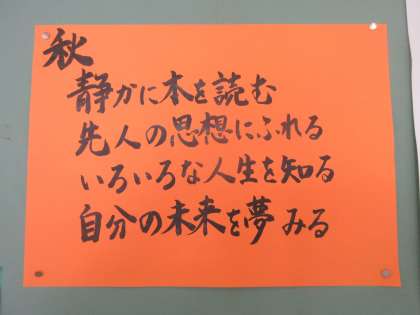 秋
静かに本を読む
先人の思想にふれる
いろいろな人生を知る
自分の未来を夢みる